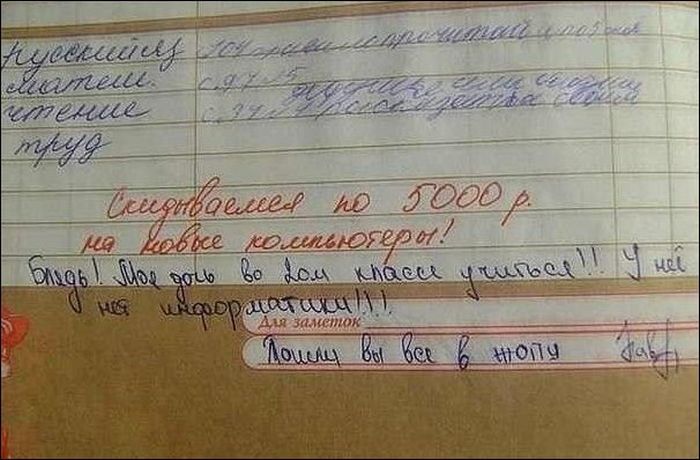 Русский яз
матем. с. 97 №5
чтение с. 34
труд
Скидываемся по 5000 р.
на новые компьютеры!
Блядь! Моя дочь во 2ом классе учиться!!! У неё
нет информатики!!!!
Для заметок
Пошли вы все в жопу